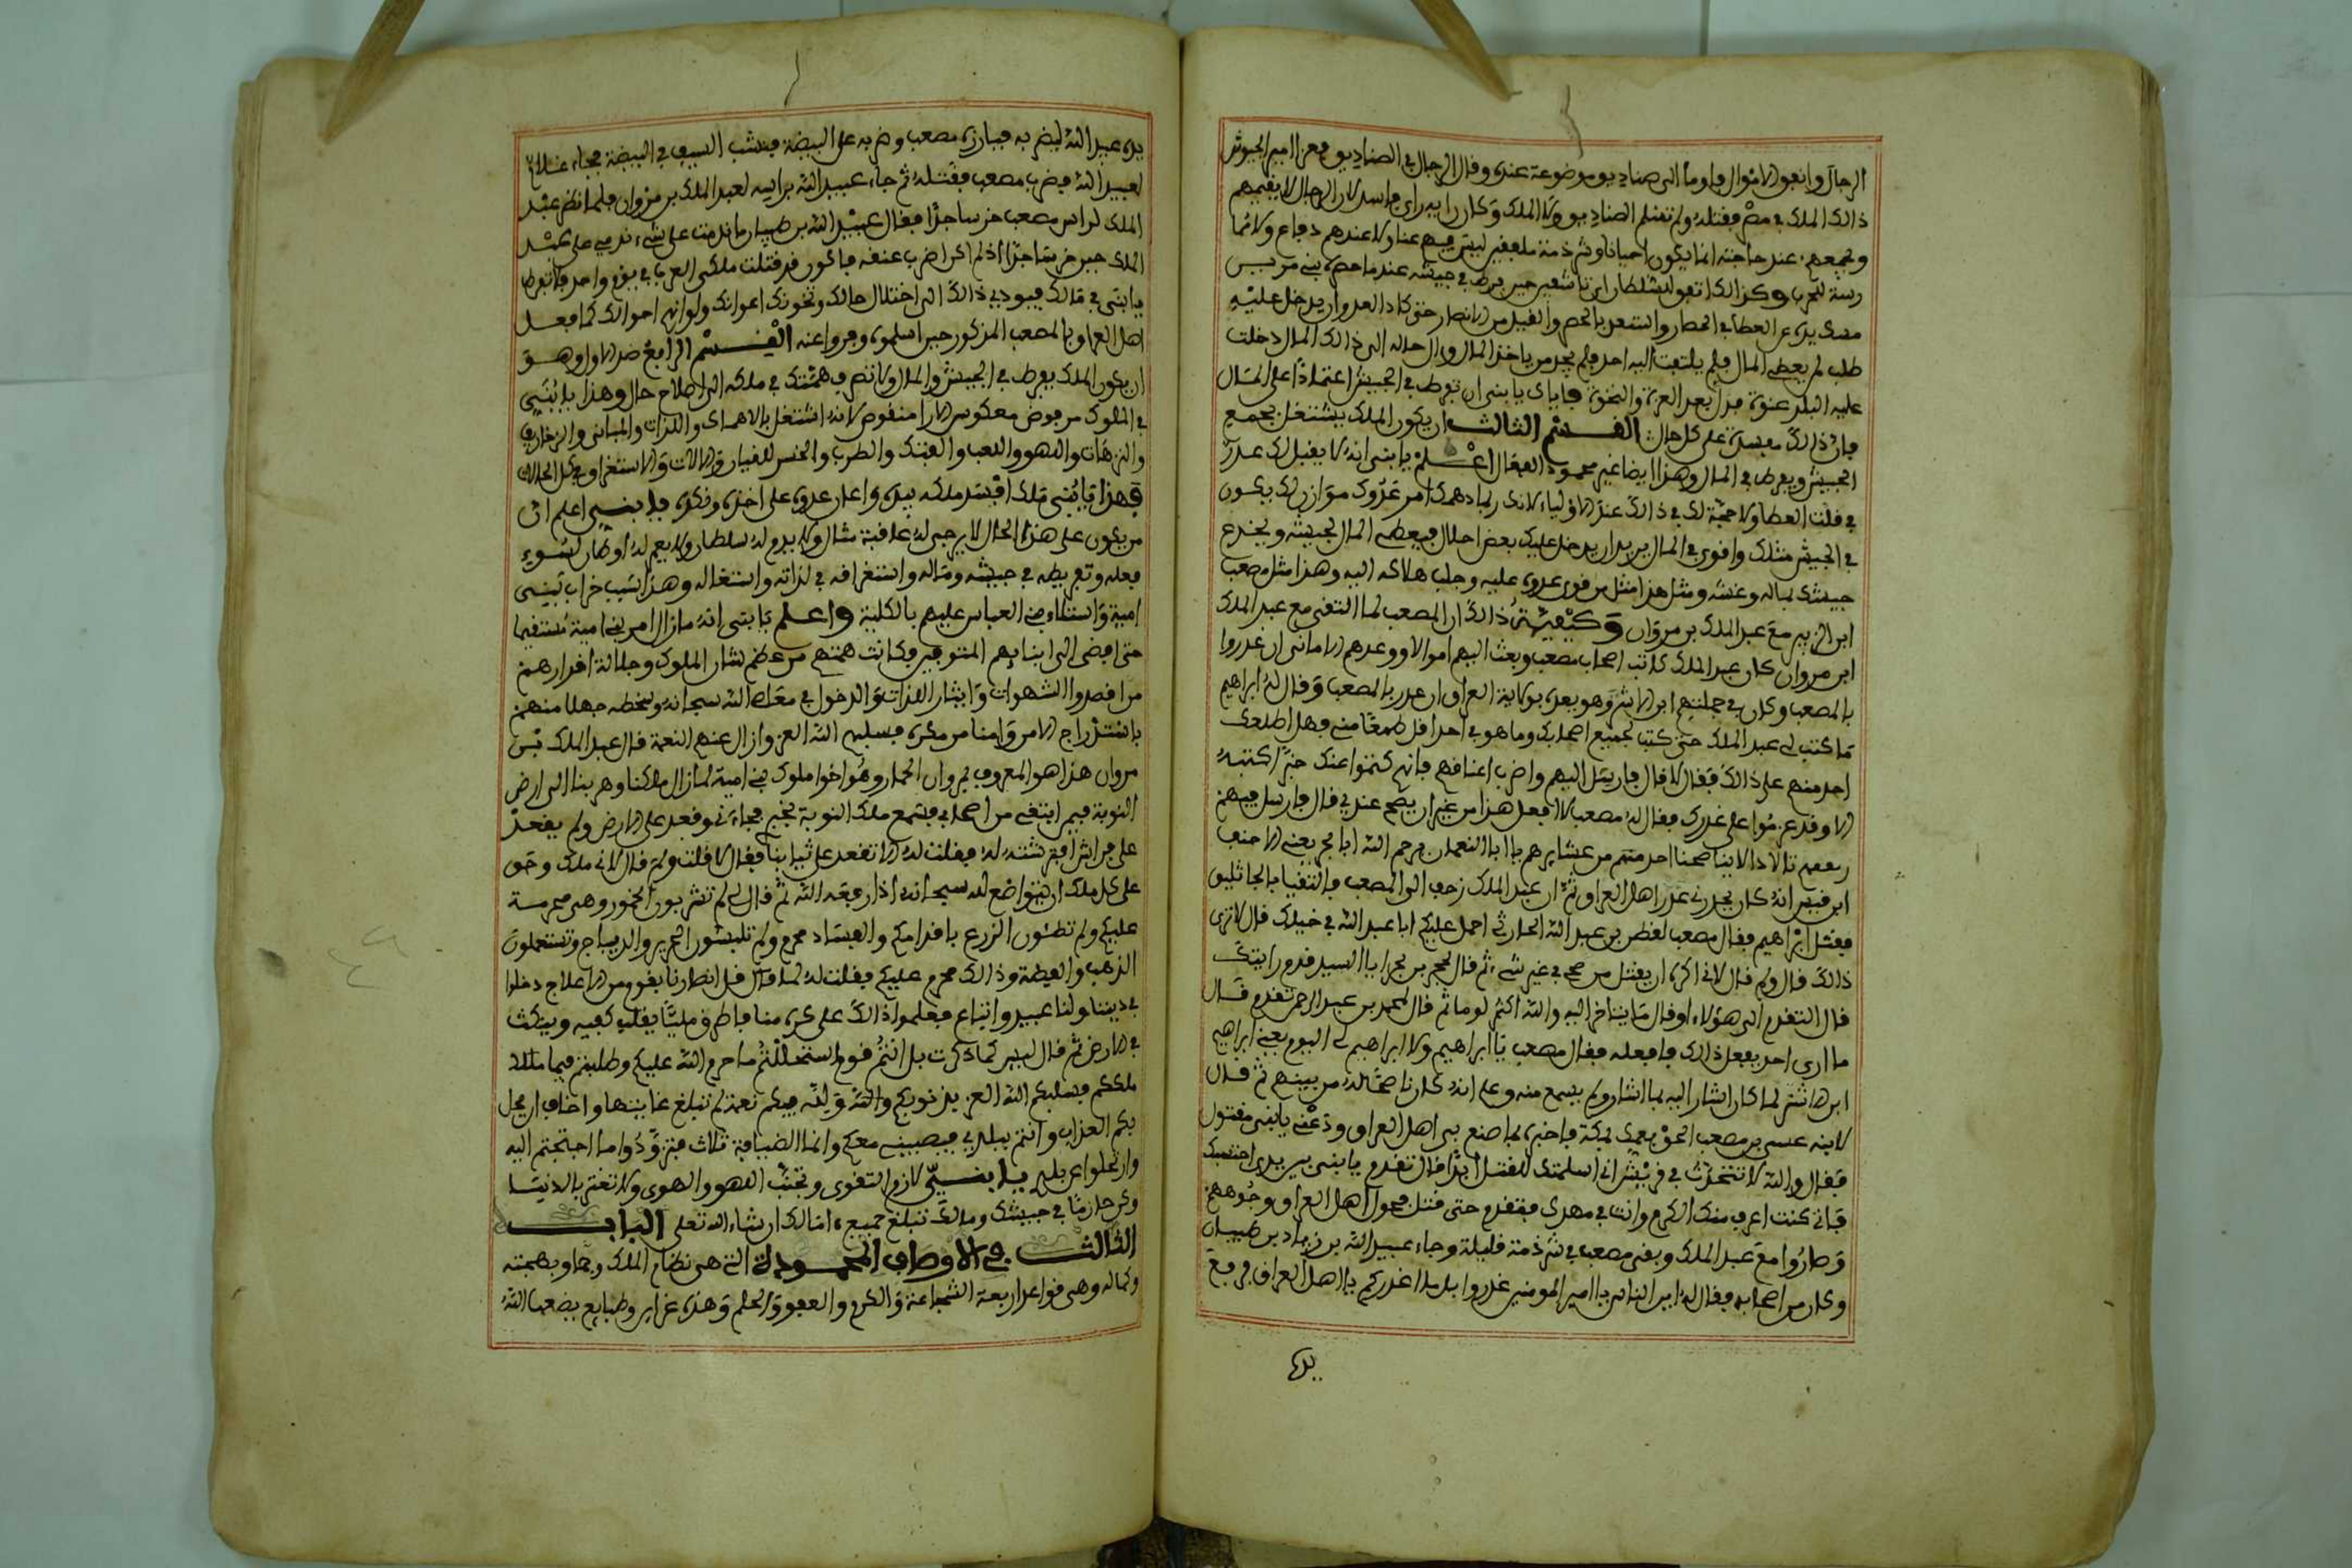 الرجال وانفق الاموال فاوما الى صناديق موضوعة عنده وقال الرجال في الصناديق فعزا امير الجيوش
ذالك الملك في مصر فقتله ولم تغنه الصناديق ولا الملك وكان رايه راي فاسد لان الرجال لا يقيمهم
ويجمعهم عند حاجته انما يكون احيانا وشرذمة ملفقين ليس فيهم غنا ولا عندهم دفاع ولا
رسة للحرب وكذالك اتفق لسلطان ابن تاشفين حين فرط في جيشه عند ما حصره بني مرين
مسك يده عن العطا في الحصار واشتغل بالحصر والقبل من الانصار حتى كاد العدو ان يدخل عليه
طلب لم يعطي المال فلم يلتفت اليه احد فلم يجد من ياخذ المال وال حاله الى ذالك المال دخلت
عليه البلد عنوة فذل بعد العزة والنخوة فاياك يا بني ان تفرط في الجيش اعتمادا على المال
فان ذالك مفسدة على كل حال القسم الثالث ان يكون الملك يشتغل بجمع
الجيش ويفرط في المال وهذا ايضا غير محمود الفعال اعلم يا بني انه لا يقبل لك عذر
في قلت العطا ولا حجة لك في ذالك عند الاولياء لانك ربما دهمك امر عدوك موازن لك يكون
في الجيش مثلك واقوى في المال يريد ان يدخل عليك بعض احلال فيعطي المال لجيشه ويخدع
جيشك بماله وغشه ومثل هذا مثل من قوى عدوه عليه وجلب هلاكه اليه وهذا مثل مصعب
ابن الزبير مع عبد الملك بن مروان وكيفية ذالك ان المصعب لما التقى مع عبد الملك
ابن مروان كان عبد الملك كاتب اصحاب مصعب وبعث اليهم اموالا ووعدهم الاماني ان غدروا
بالمصعب وكان في جملتهم ابن الاشتر وهو بعده بولاية العراق ان غدر بالمصعب وقال له ابراهيم
ما كتب لي عبد الملك حتى كتب لجميع اصحابك وما هو في احد اقل طمعا مني فهل اطلعك
احد منهم على ذالك فقال لا قال فارسل اليهم واضرب اعناقهم فانهم كتموا عنك خبر اكتبه
الا وقد عزموا على غدرك فقال له مصعب لا افعل هذا من غير ان يصح عندي قال فارسل فيهم
ابن قيس انه كان يحذرني غدر اهل العراق ثم ان عبد الملك زحف الى المصعب فالتقيا بالجاثليق
فقتل ابراهيم فقال مصعب لقطن بن عبد الله الحارثي احمل عليهم ابا عبد الله في خيلك قال لا نرى
ذالك قال ولم قال لاني اكره ان يقتل مذحج في غير شيء ثم قال لحجر بن ابجر يا السيد قدم رايتك
قال التقدم الى هؤلاء اوقال ما يتاخر اليه والله اكثر لوما ثم قال لمحمد بن عبد الرحمن تقدم قال
ما ارى احد يفعل ذالك فافعله فقال مصعب يا ابراهيم ولا ابراهيم لي اليوم يعني ابراهيم
ابن الاشتر لما كان اشار اليه بما اشار ولم يسمع منه وعلم انه كان ناصحا له من بينهم ثم قال
لابنه عيسى بن مصعب الحق بعمك لمكة فاخبره بما صنع بي اهل العراق ودعني يا بني مقتول
فقال والله لا تتحدث في قريش اني اسلمتك للقتل ابدا قال تقدم يا بني بين يدي احتسبك
فاني كنت اعرف منك الكرم وانت في مهدك فتقدم حتى قتل فحول اهل العراق وجوههم
وصاروا مع عبد الملك وبقى مصعب في شرذمة قليلة وجاء عبيد الله بن زياد بن ظبيان
وكان من اصحابه فقال له اين الناس يا امير المومنين غدروا بك ما اغدركم يا اهل العراق فرفع
يده
يده عبيد الله ليضربه فبادره مصعب وضربه على البيضة فنشب السيف في البيضة فجاء غلام
لعبيد الله فضرب مصعب فقتله ثم جاء عبيد الله براسه لعبد الملك بن مروان فلما نظر عبد
الملك لراس مصعب خر ساجدا فقال عبيد الله بن ظبيان ما ندمت على شيء ندمي على عبد
الملك حين خر ساجدا اذ لم اكن اضرب عنقه فاكون قد قتلت ملكي العرب في يوم واحد فلا تفرط
يا بني في مالك فيودي ذالك الى اختلال حالك وتخونك اعوانك ولو انهم اخوالك كما فعل
اهل العراق بالمصعب المذكور حين اسلموه وفروا عنه القسم الرابع ضد الاول وهو
ان يكون الملك يفرط في الجيش والمال ولا تصرف همتك في ملكه الى اصلاح حال وهذا يا بني
في الملوك مرفوض معكوس الاراء منقوص لانه اشتغل بالاهواك واللذات والمباني والزخارف
والنزهات واللهو واللعب والفتك والطرب والحنس للقيان والالات والاستغراق في كل الحالات
فهذا يا بني ملك افسد ملكه بيده واعان عدوه على اخذه ونكده فيا بني اعلم ان
من يكون على هذا الحال لا يرجى له عاقبة مثال ولا يدوم له سلطان ولا يعمر له اوطان لسوء
فعله وتفريطه في جيشه وماله واستغراقه في لذاته واشتغاله وهذا سبب خراب بني
امية واستلاء بني العباس عليهم بالكلية واعلم يا بني انه ما زال امر بني امية مستقيما
حتى افضى الى ابنايهم المترفين وكانت همتهم من عظم شان الملوك وجلالة اقدارهم
من اقصدوا الشهوات وايثار اللذات والدخول في معاصي الله سبحانه وسخطه جهلا منهم
باستدراج الامر وامنا من مكره فسلبهم الله العز وازال عنهم النعمة قال عبد الملك بن
مروان هذا هو المعروف بمروان الحمار وهو اخوا ملوك بني امية لما زال ملكنا وهربنا الى ارض
النوبة فيمن ابتغى من اصحابي فسمع ملك النوبة بخبري فجاءني وقعد على الارض ولم يقعد
على فراش افترشته له فقلت له الا تقعد على ثيابنا فقال لا قلت ولم قال لاني ملك وحق
على كل ملك ان يتواضع لله سبحانه اذا رفعه الله ثم قال لي لم تشربون الخمور وهي محرمة
عليكم ولم تطئون الزرع باقدامكم والفساد محرم ولم تلبسون الحرير والديباج وتستعملون
الذهب والفضة وذالك محرم عليكم فقلت له لما قال قل انصارنا بقوم من الاعلاج دخلوا
في ديننا ولنا عبيد واتباع فعلموا ذالك على كره منا فاطرق مليا يقلب كفيه وينكث
في الارض ثم قال ليس كما ذكرت بل انتم قوم استحللتم ما حرم الله عليكم وظلمتم فيما ملك
ملككم فسلبكم الله العز بذنوبكم والله ولله فيكم نعمة لم تبلغ غايتها واخاف ان يحل
بكم العذاب وانتم ببلدي فيصيبني معكم وانما الضيافة ثلاث فتزودوا ما احتجتم اليه
وارتحلوا عن بلدي يا بني لازم التقوى وتجنب اللهو والهوى ولا تغتر بالدنيا
وكن حازما في جيشك ومالك تبلغ جميع امالك ان شاء الله تعلى الباب
الثالث في الاوصاف المحمودة التي هي نظام الملك وجماله وبهجته
وكماله وهي قواعد اربعة الشجاعة والكرم والعفو والحلم وهذه غرايز وطبايع يضعها الله